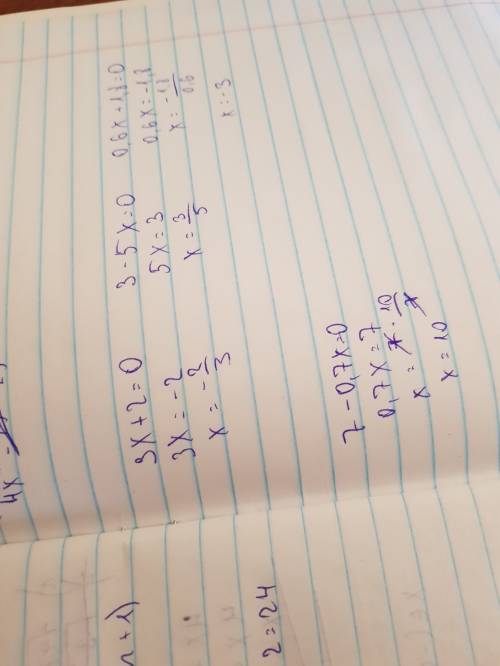 4x
3x + 2 = 0
3x = -2
x = -2/3
3 - 5x = 0
5x = 3
x = 3/5
0,6x + 1,8 = 0
0,6x = -1,8
x = -1,8/0,6
x = -3
7 - 0,7x = 0
0,7x = 7
x = 7 · 10/7
x = 10
2 = 24